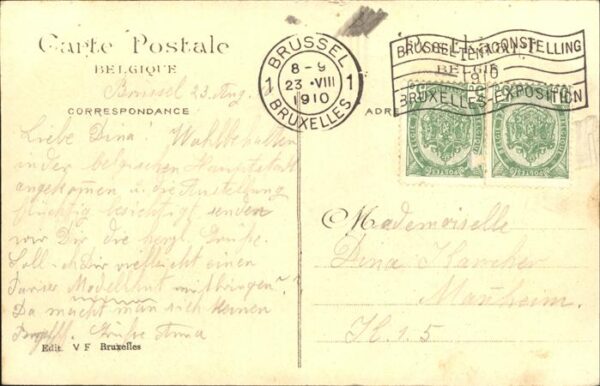 Carte Postale
BELGIQUE
Brüssel 23. Aug.
CORRESPONDANCE
Liebe Dina! Wohlbehalten
in der belgischen Hauptstadt
angekommen u. die Ausstellung
flüchtig besichtigt senden
wir Dir die herzl. Grüße.
Soll ich Dir vielleicht einen
Pariser Modellhut mitbringen?
Da macht man sich keinen
Grüße Anna
Edit. V F Bruxelles
BRÜSSEL
8-9
1 23 ·VIII 1
1910
BRUXELLES
BRUSSEL-TENTOONSTELLING
1910
BRUXELLES-EXPOSITION
ADR
Mademoiselle
Dina Karcher
Manheim.
H. 1. 5